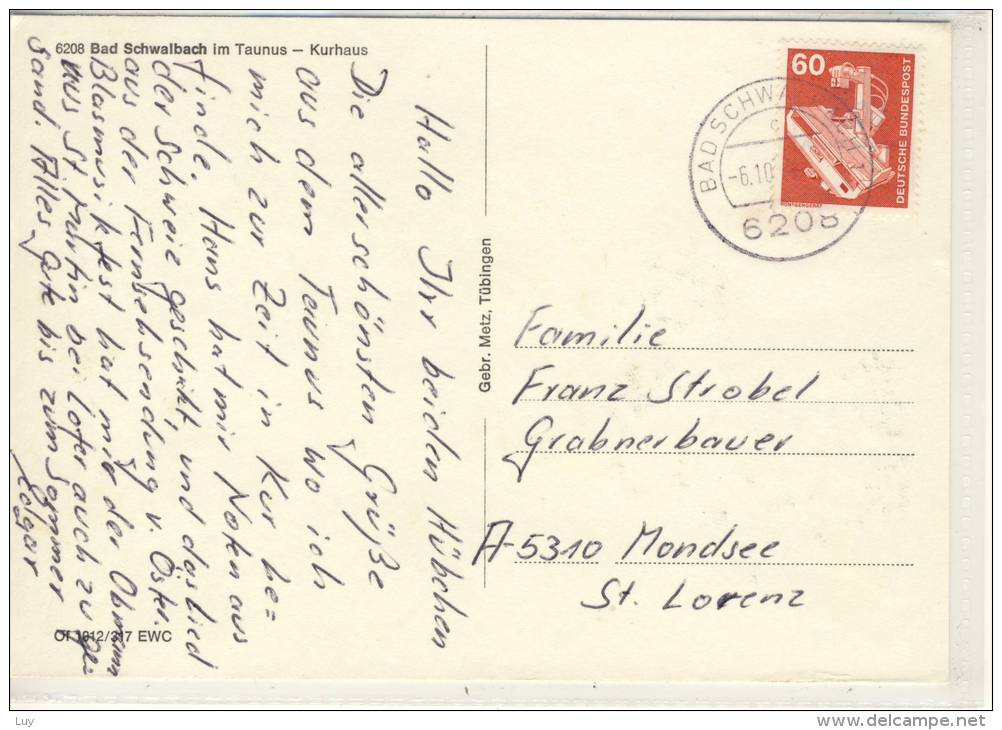 6208 Bad Schwalbach im Taunus – Kurhaus
Hallo Ihr beiden Hübchen
Die allerschönsten Grüße
aus dem Taunus wo ich
mich zur Zeit in Kur be=
finde. Hans hat mir Noten aus
der Schweie geschikt, und das Lied
aus der Fernsehsendung v. Öster.
Blasmusikfest hat mir der Obmann
aus St Martin bei Lofer auch zu ge=
sand. Alles Gute bis zum Sommer
Of 1012/317 EWC
Gebr. Metz, Tübingen
60
DEUTSCHE BUNDESPOST
BAD SCHWA
-6.10
6208
Familie
Franz Strobel
Grabnerbauer
A-5310 Mondsee
St. Lorenz
Luy
delcampe.net